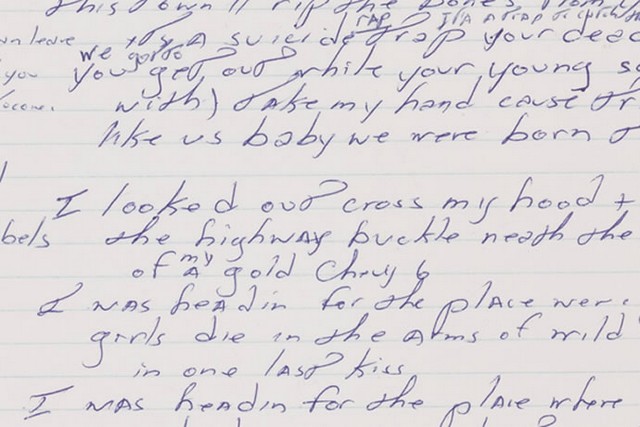 this town'll rip the bones from y
rap its a trap to catch the
wn leave it's A suicide trap your dead
we gotta
you you get out while your young so
with) take my hand cause tr
like us baby we were born t
I looked out cross my hood +
bels the highway buckle neath the
my
of A gold Chevy 6
I was headin for the place wer
girls die in the Arms of wild
in one last kiss
I was headin for the place where